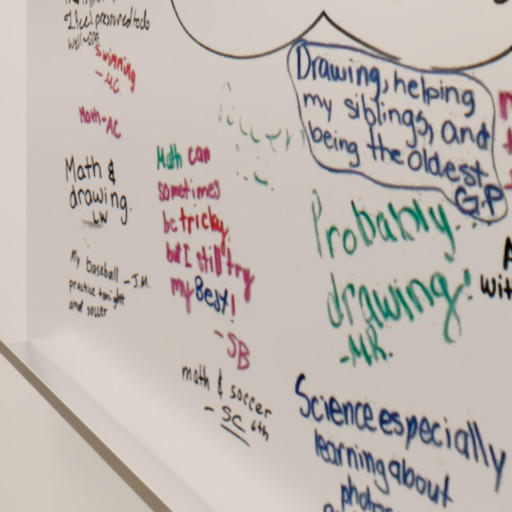 I feel pressured to do
well - 
Swimming
- UC
Math - AC
Math &
drawing
LW
My baseball - J.M.
practice tonight
and soccer
Math can
sometimes
be tricky
but I still try
my Best!
- SB
math & soccer
- SC 6th
soccer
Drawing, helping
my siblings, and
being the oldest
G.P
Probably
drawing!
- MR.
with
Science especially
learning about